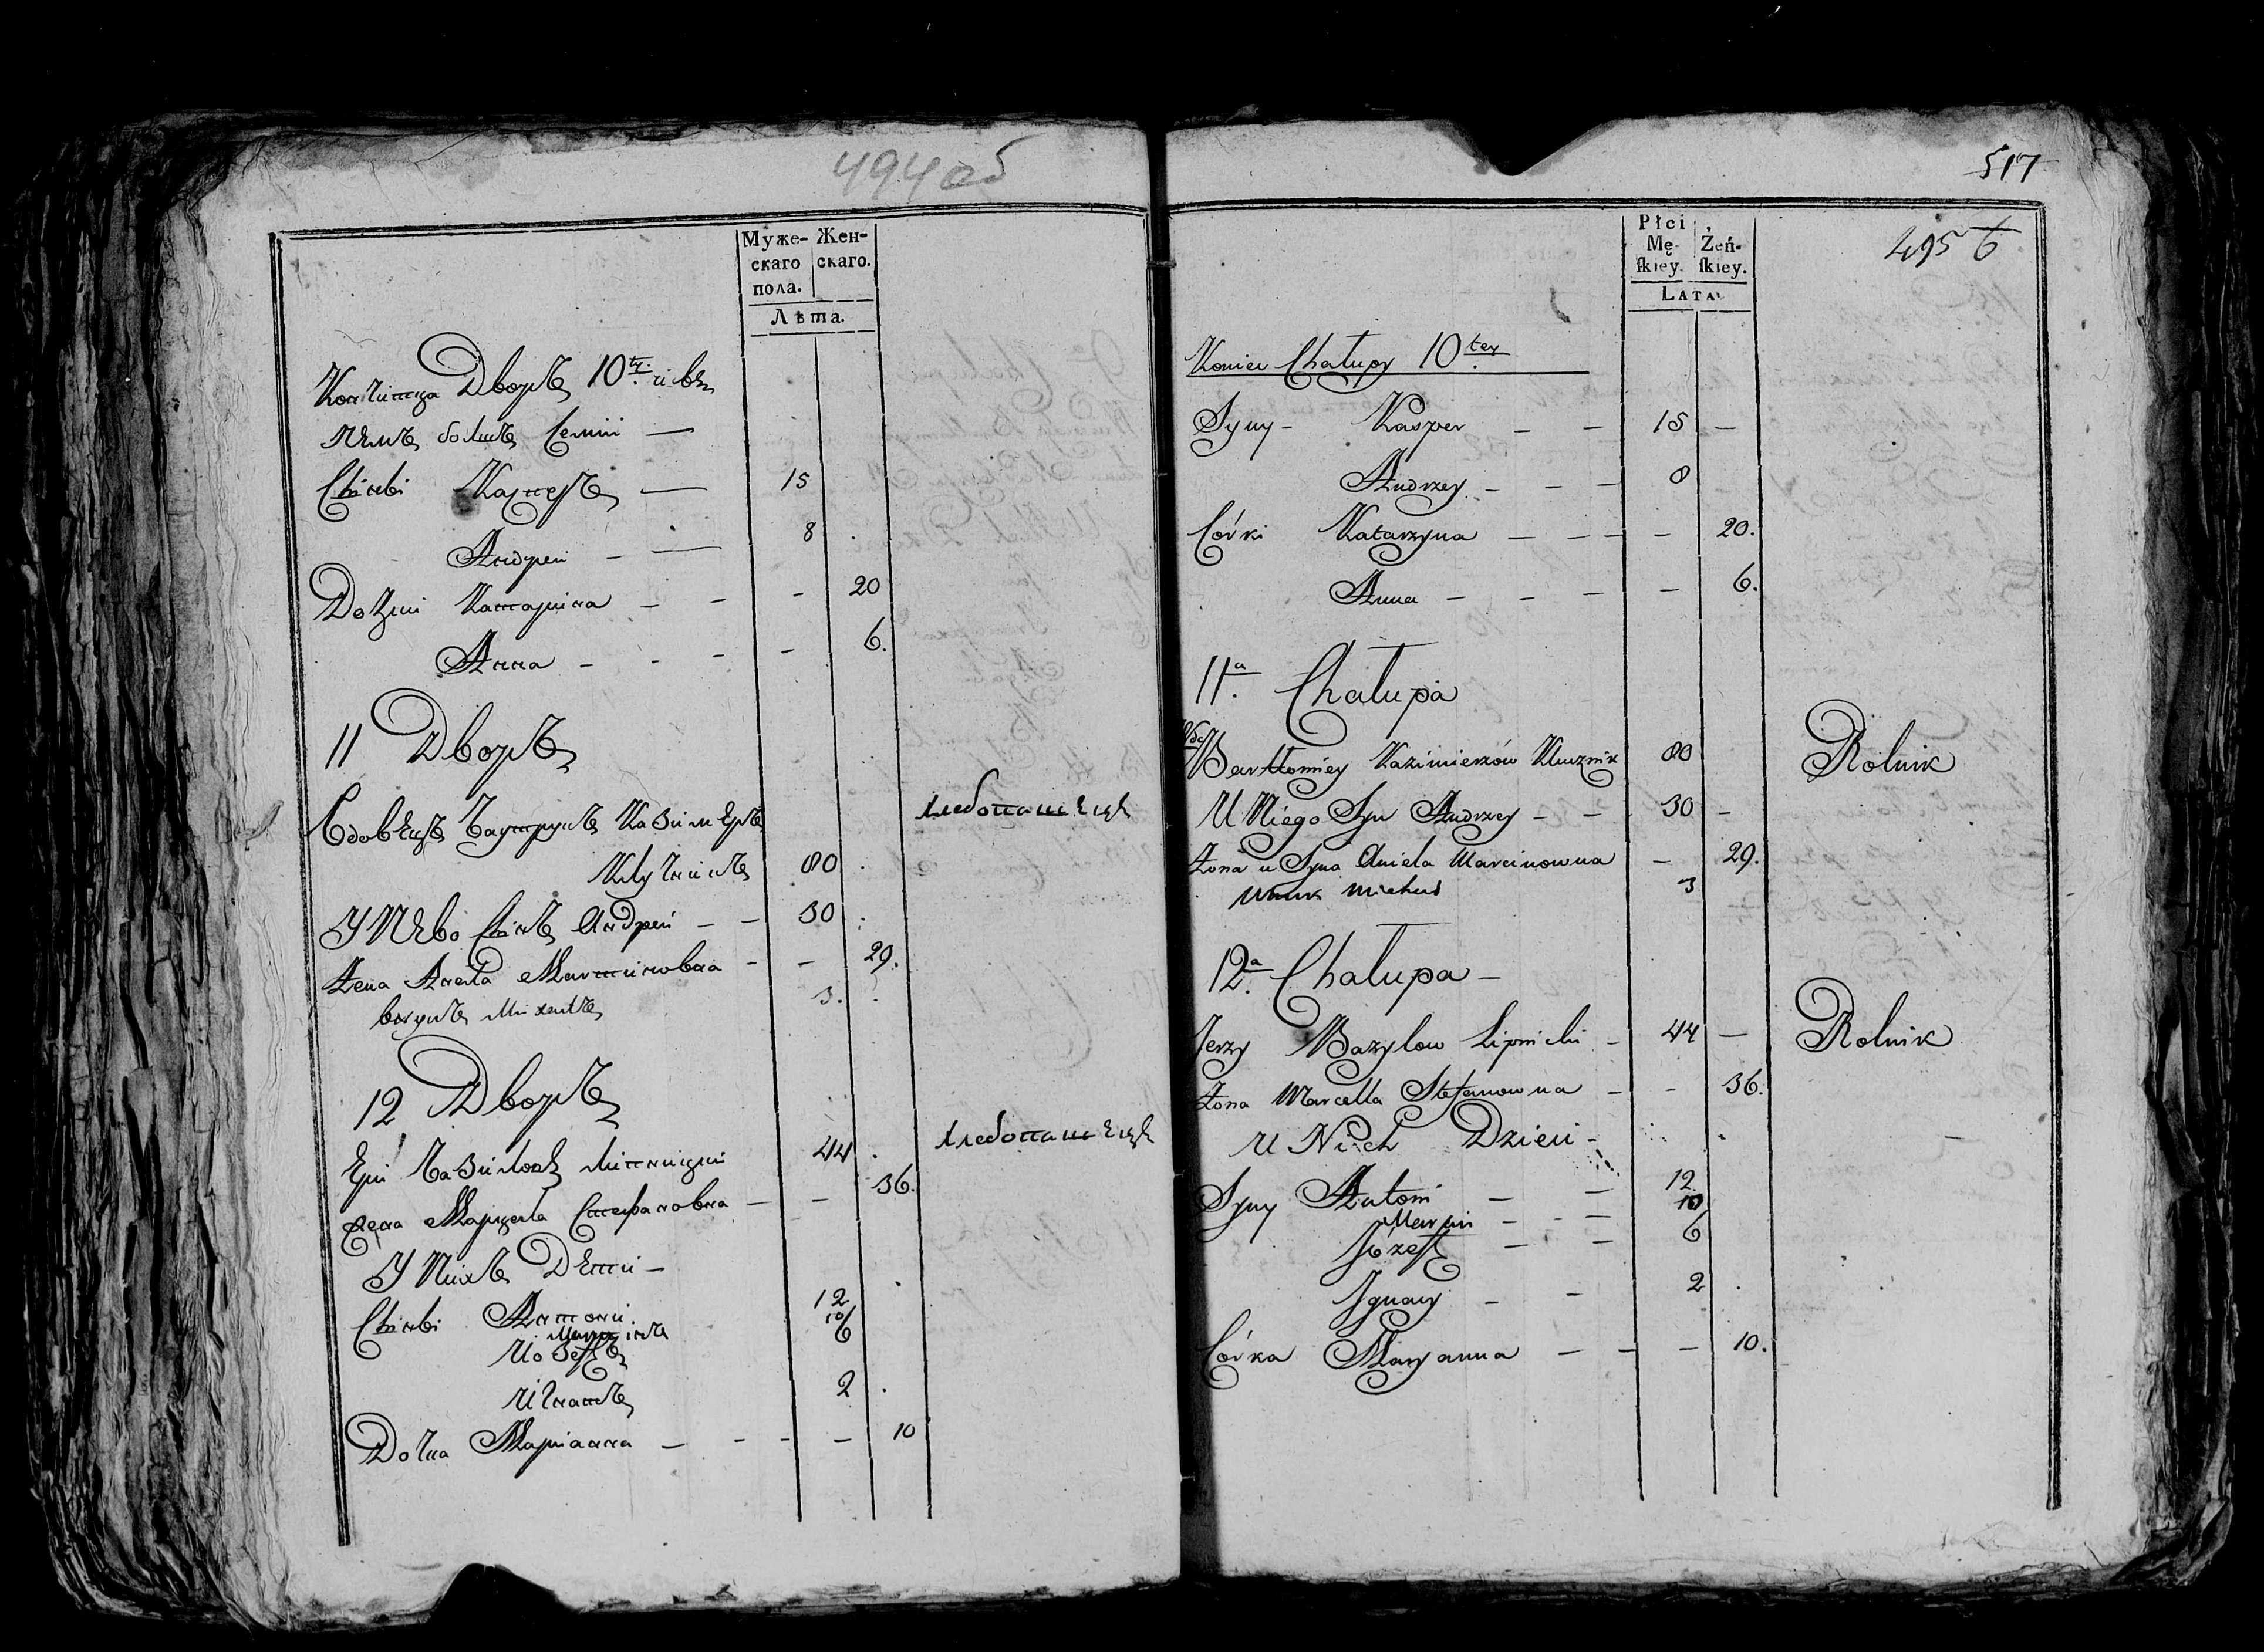 494 об
Муже- Жен-
скаго скаго.
пола.
Лѣта.
Дворъ 10 ты: и въ
немъ Семіи —
Сыны Касперъ — 15
Андреи — — 8
Дочки Катарина — — — 20
Анна — — — — 6.
11 Дворъ
Вдовецъ Казимеръ хлебопашецъ
Ключникъ 80
У Нево Сынъ Андреи — — 30
Жена Анела Мартиновна — — 29.
внукъ Михалъ 3.
12 Дворъ
Ери Базиловъ Липницки 44 хлебопашецъ
жена Марцела Стефановна — — 36.
У Нихъ Дети —
Сыны Антони 12
Мартинъ 10
Иозефъ 6
Игнатъ 2
Дочка Маріанна — — — — 10
517
495 б
Płci
Mę- Żeń-
ſkiey. ſkiey.
LATA
Koniec Chałupy 10 tey
Syny - Kasper — — 15 —
Andrzey — — — 8
Córki Katarzyna — — — — 20.
Anna — — — — 6.
11.a Chałupa
Wdc Bartłomiey Kazimierzów Klucznik 80 Rolnik
U Niego Syn Andrzey — — 30 —
Żona u Syna Aniela Marcinowna — 29.
Wnuk Michał 3
12.a Chałupa —
Jerzy Bazylow Lipnicki — 44 — Rolnik
Żona Marcella Stefanowna — — 36.
U Nich Dzieci —
Syny Antoni — — 12
Marcin — — — 10
Józeff — — 6
Ignacy — — 2
Córka Maryanna — — — 10.